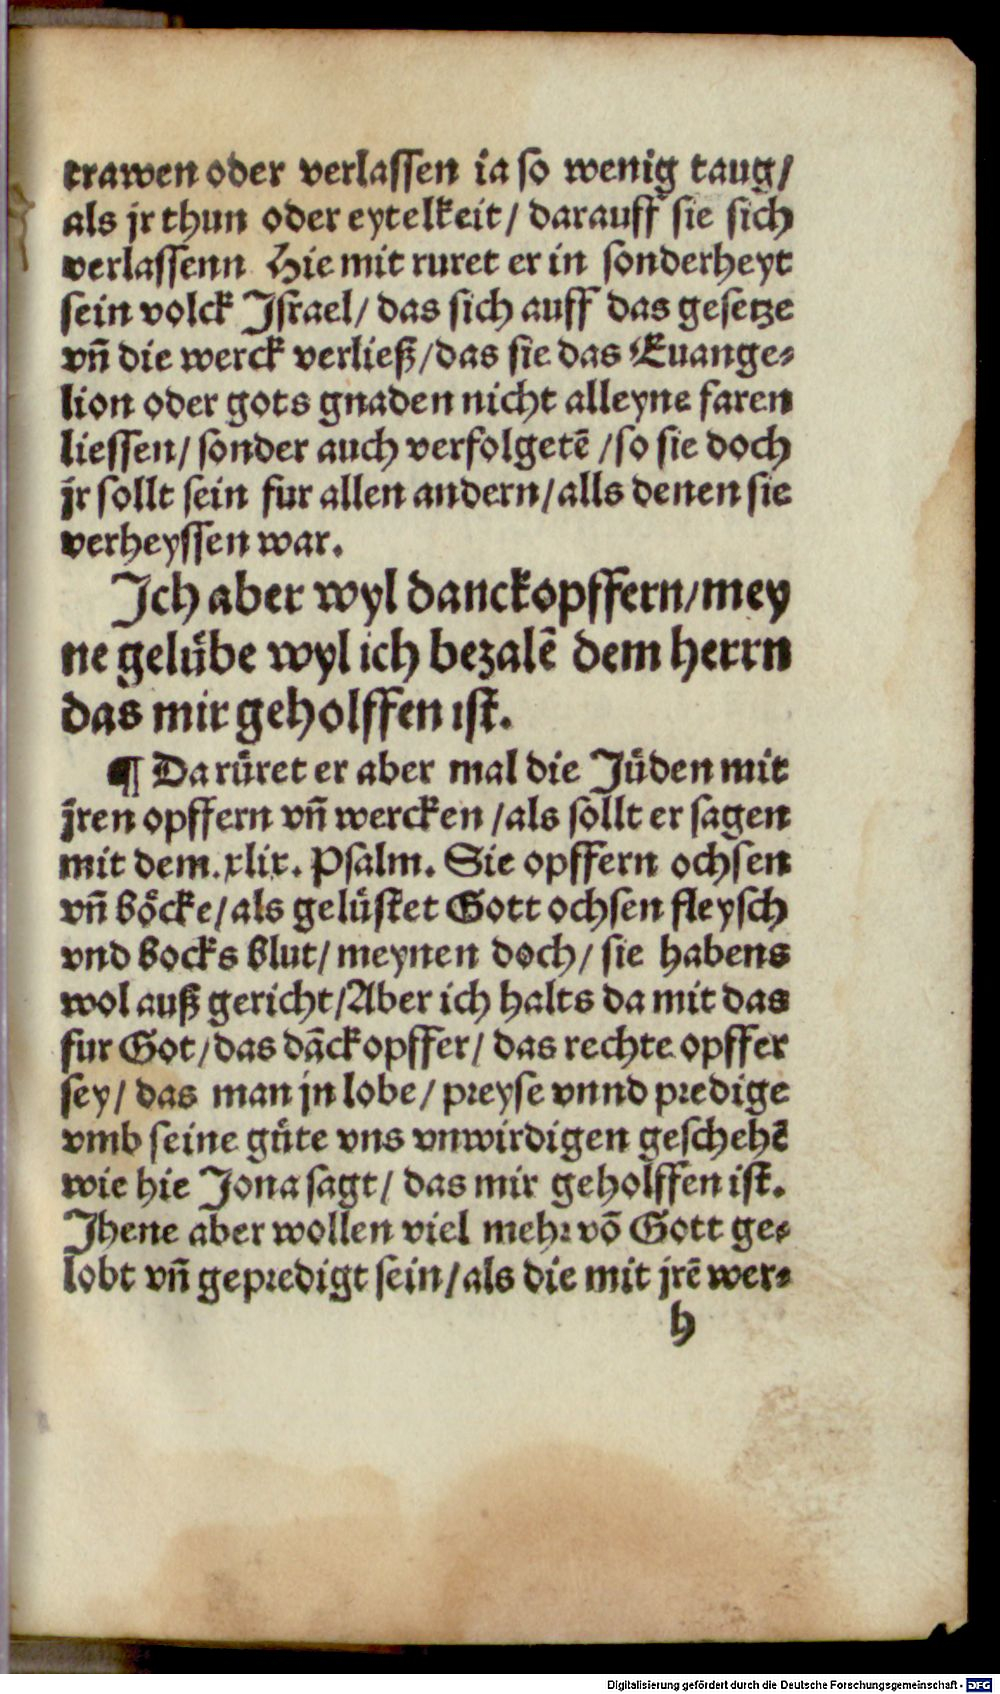 trawen oder verlassen ia so wenig taug/
als jr thun oder eytelkeit/ darauff sie sich
verlassenn Hie mit ruret er in sonderheyt
sein volck Israel/ das sich auff das gesetze
vñ die werck verließ/das sie das Euange-
lion oder gots gnaden nicht alleyne faren
liessen/ sonder auch verfolgetē /so sie doch
jr sollt sein fur allen andern/alls denen sie
verheyssen war.
Ich aber wyl danckopffern/mey
ne gelübe wyl ich bezalē dem herrn
das mir geholffen ist.
¶ Da rüret er aber mal die Jüden mit
jren opffern vñ wercken /als sollt er sagen
mit dem.xlix. Psalm. Sie opffern ochsen
vñ böcke/als gelüstet Gott ochsen fleysch
vnd bocks blut/ meynen doch/ sie habens
wol auß gericht/Aber ich halts da mit das
fur Got/das dāckopffer/ das rechte opffer
sey/ das man jn lobe/ preyse vnnd predige
vmb seine güte vns vnwirdigen geschehē
wie hie Jona sagt/ das mir geholffen ist.
Jhene aber wollen viel mehr võ Gott ge-
lobt vñ gepredigt sein/als die mit jrē wer-
h
Digitalisierung gefördert durch die Deutsche Forschungsgemeinschaft - DFG